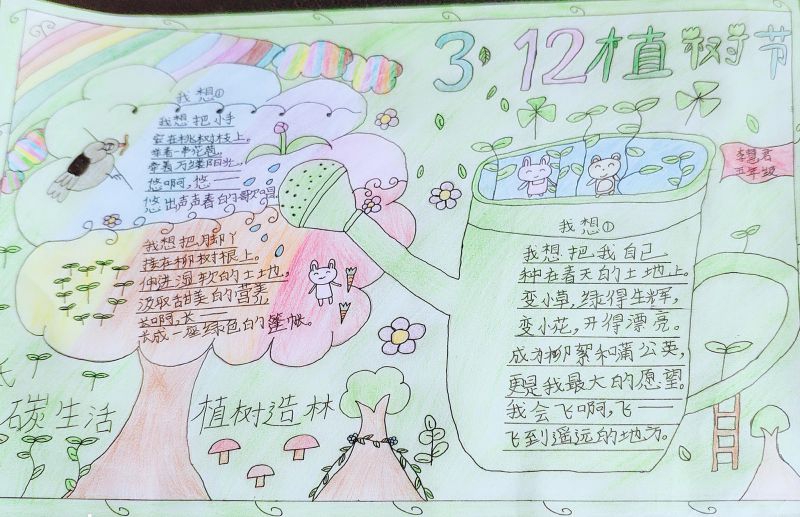 3 12植树节
我想①
我想把小手
安在桃树枝上。
牵着一串花苞,
牵着万缕阳光,
悠啊,悠——
悠出声声春的歌唱
我想把脚丫
接在柳树根上。
伸进湿软的土地,
汲取甜美的营养,
长啊,长——
长成一座绿色的篷帐。
李慧君
年级
我想①
我想把我自己
种在春天的土地上。
变小草,绿得生辉,
变小花,开得漂亮。
成为柳絮和蒲公英,
更是我最大的愿望。
我会飞啊,飞——
飞到遥远的地方。
碳生活
植树造林